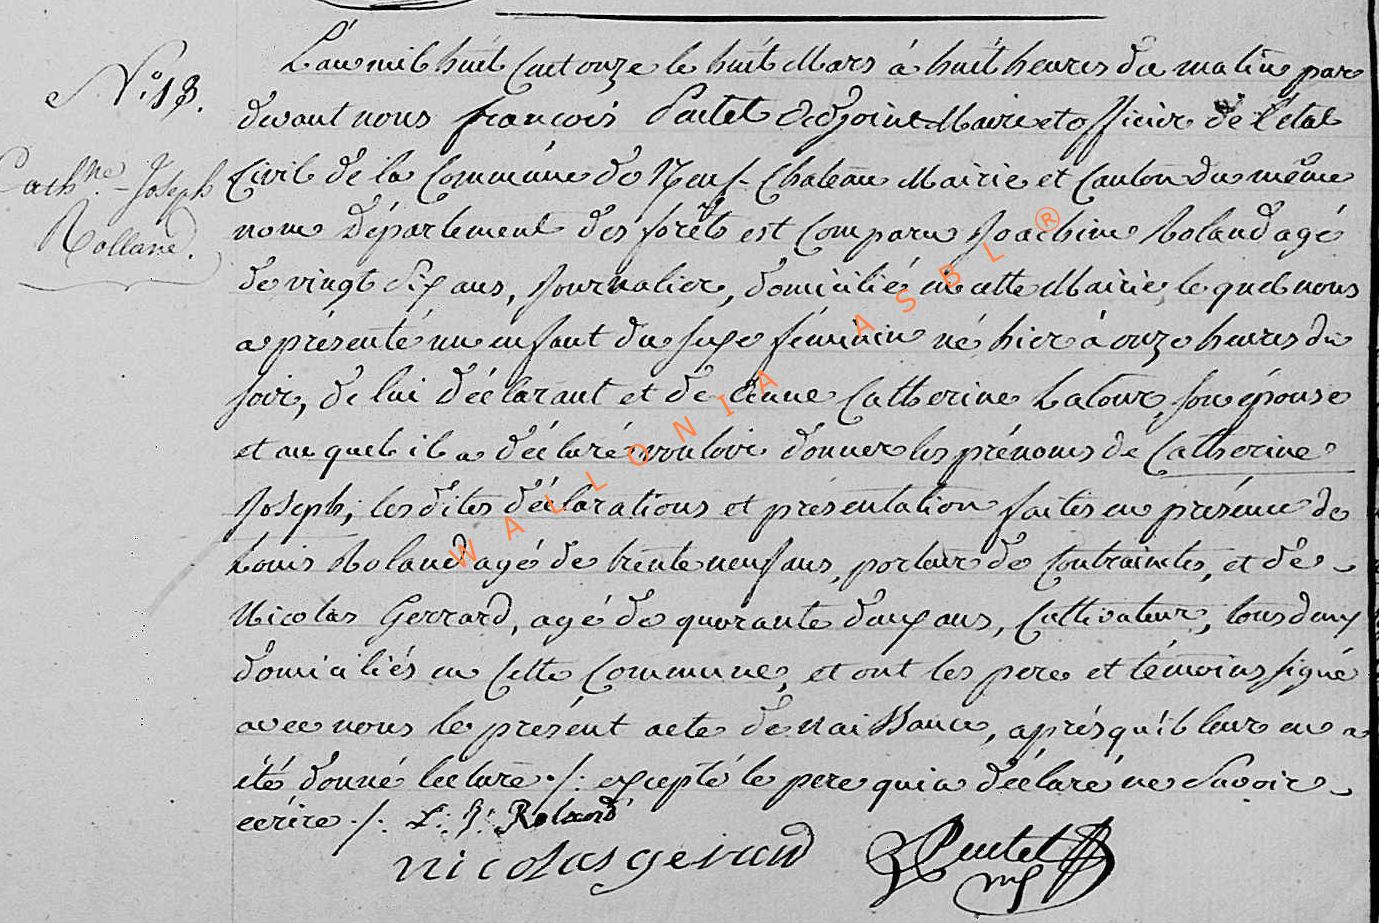 N.° 18.
Cath.ne Joseph
Rolland.
L'an mil huit Cent onze le huit Mars à huit heures du matin par
devant nous françois Pertet adjoint Maire et officier de l'état
Civil de la Commune de Neuf-Chateau Mairie et Canton du même
nom département des forêts est Comparu Joachim Roland agé
de vingt six ans, Journalier, domicilié en cette Mairie, le quel nous
a présenté un enfant du sexe féminin né hier à onze heures du
soir, de lui déclarant et de Anne Catherine Latour, son épouse
et au quel il a déclaré vouloir donner les prénoms de Catherine
Joseph; les dites déclarations et présentation faites en présence de
Louis Roland agé de trente neuf ans, porteur de Contraintes, et de
Nicolas Gerrard, agé de quarante deux ans, Cultivateur, tous deux
domiciliés en Cette Commune, et ont les pere et témoins signé
avec nous le présent acte de naissance, après qu'il leur en a
été donné lecture ./: excepté le pere qui a déclaré ne Savoir
écrire ./: L: J: Roland
nicolas gerard
WALLONIA ASBL ®